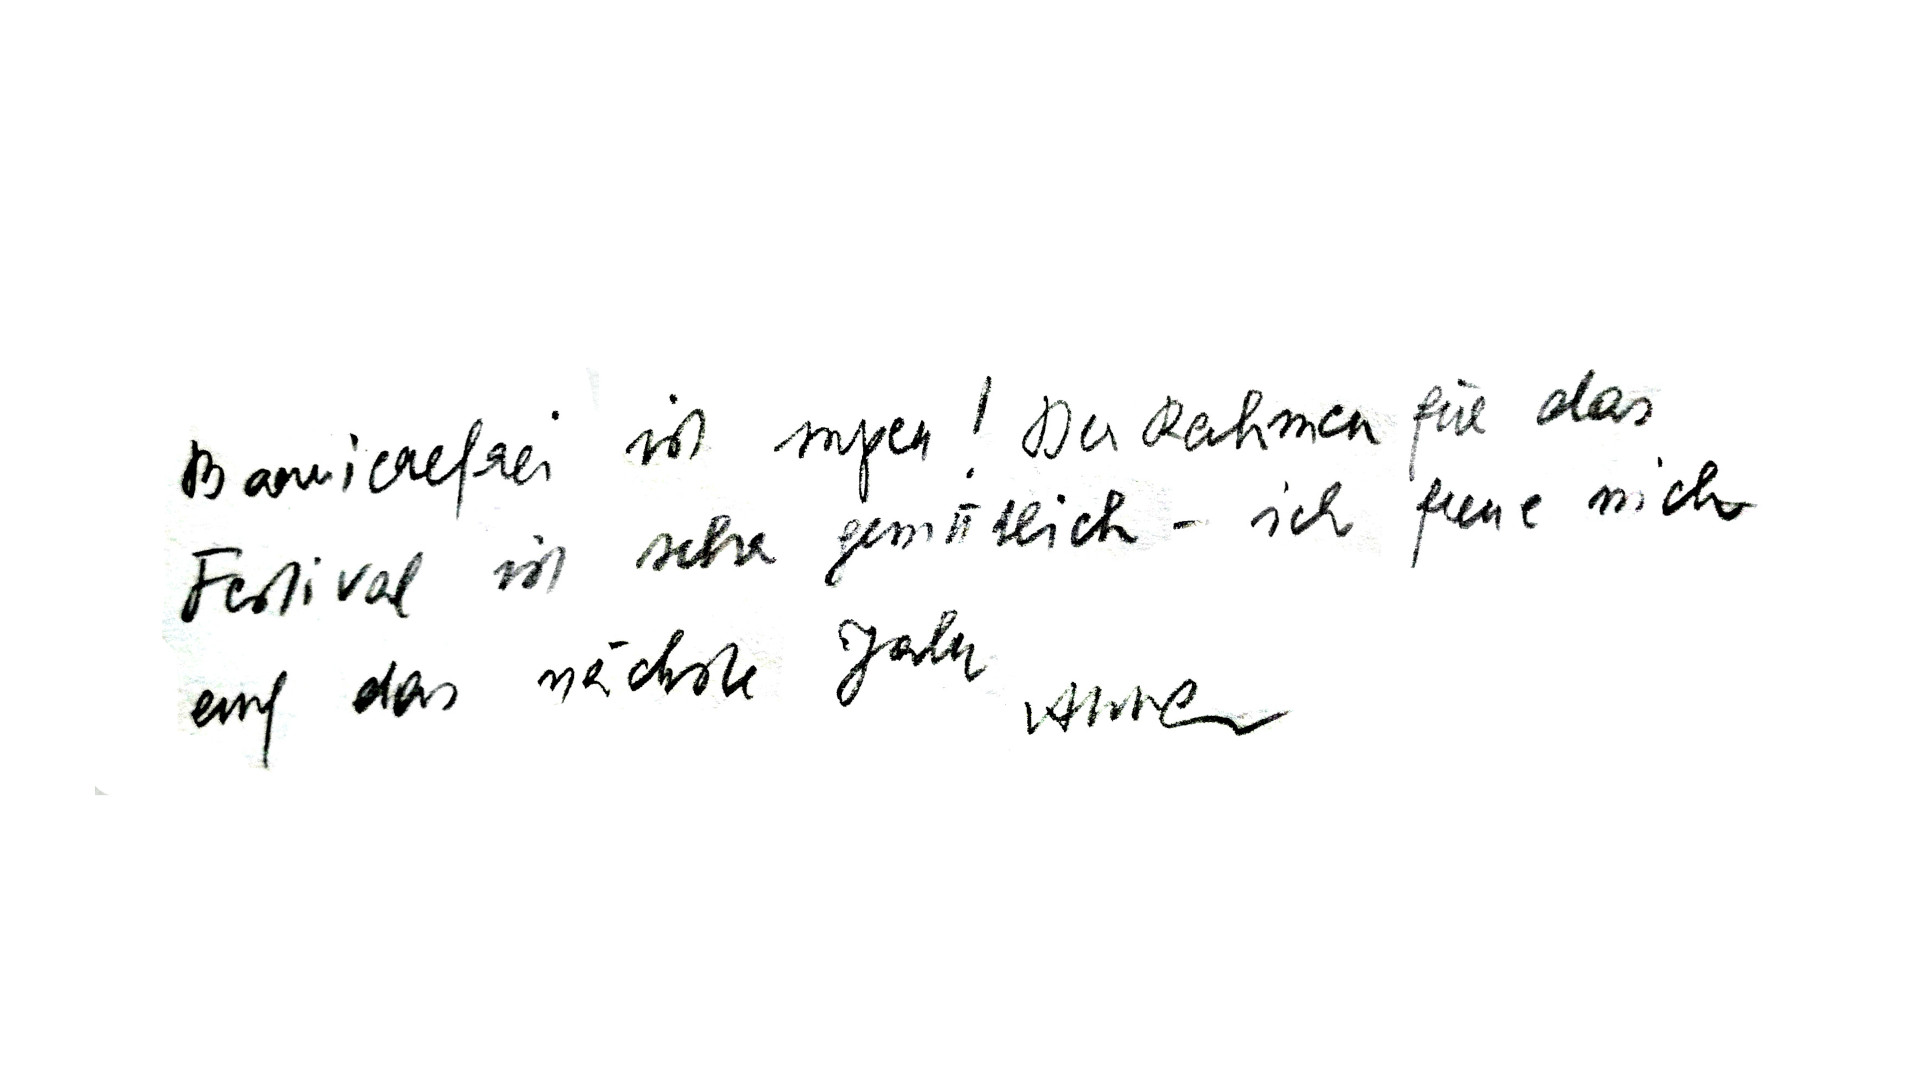 Barrierefrei ist super! Der Rahmen für das
Festival ist sehr gemütlich - ich freue mich
auf das nächste Jahr
Anne